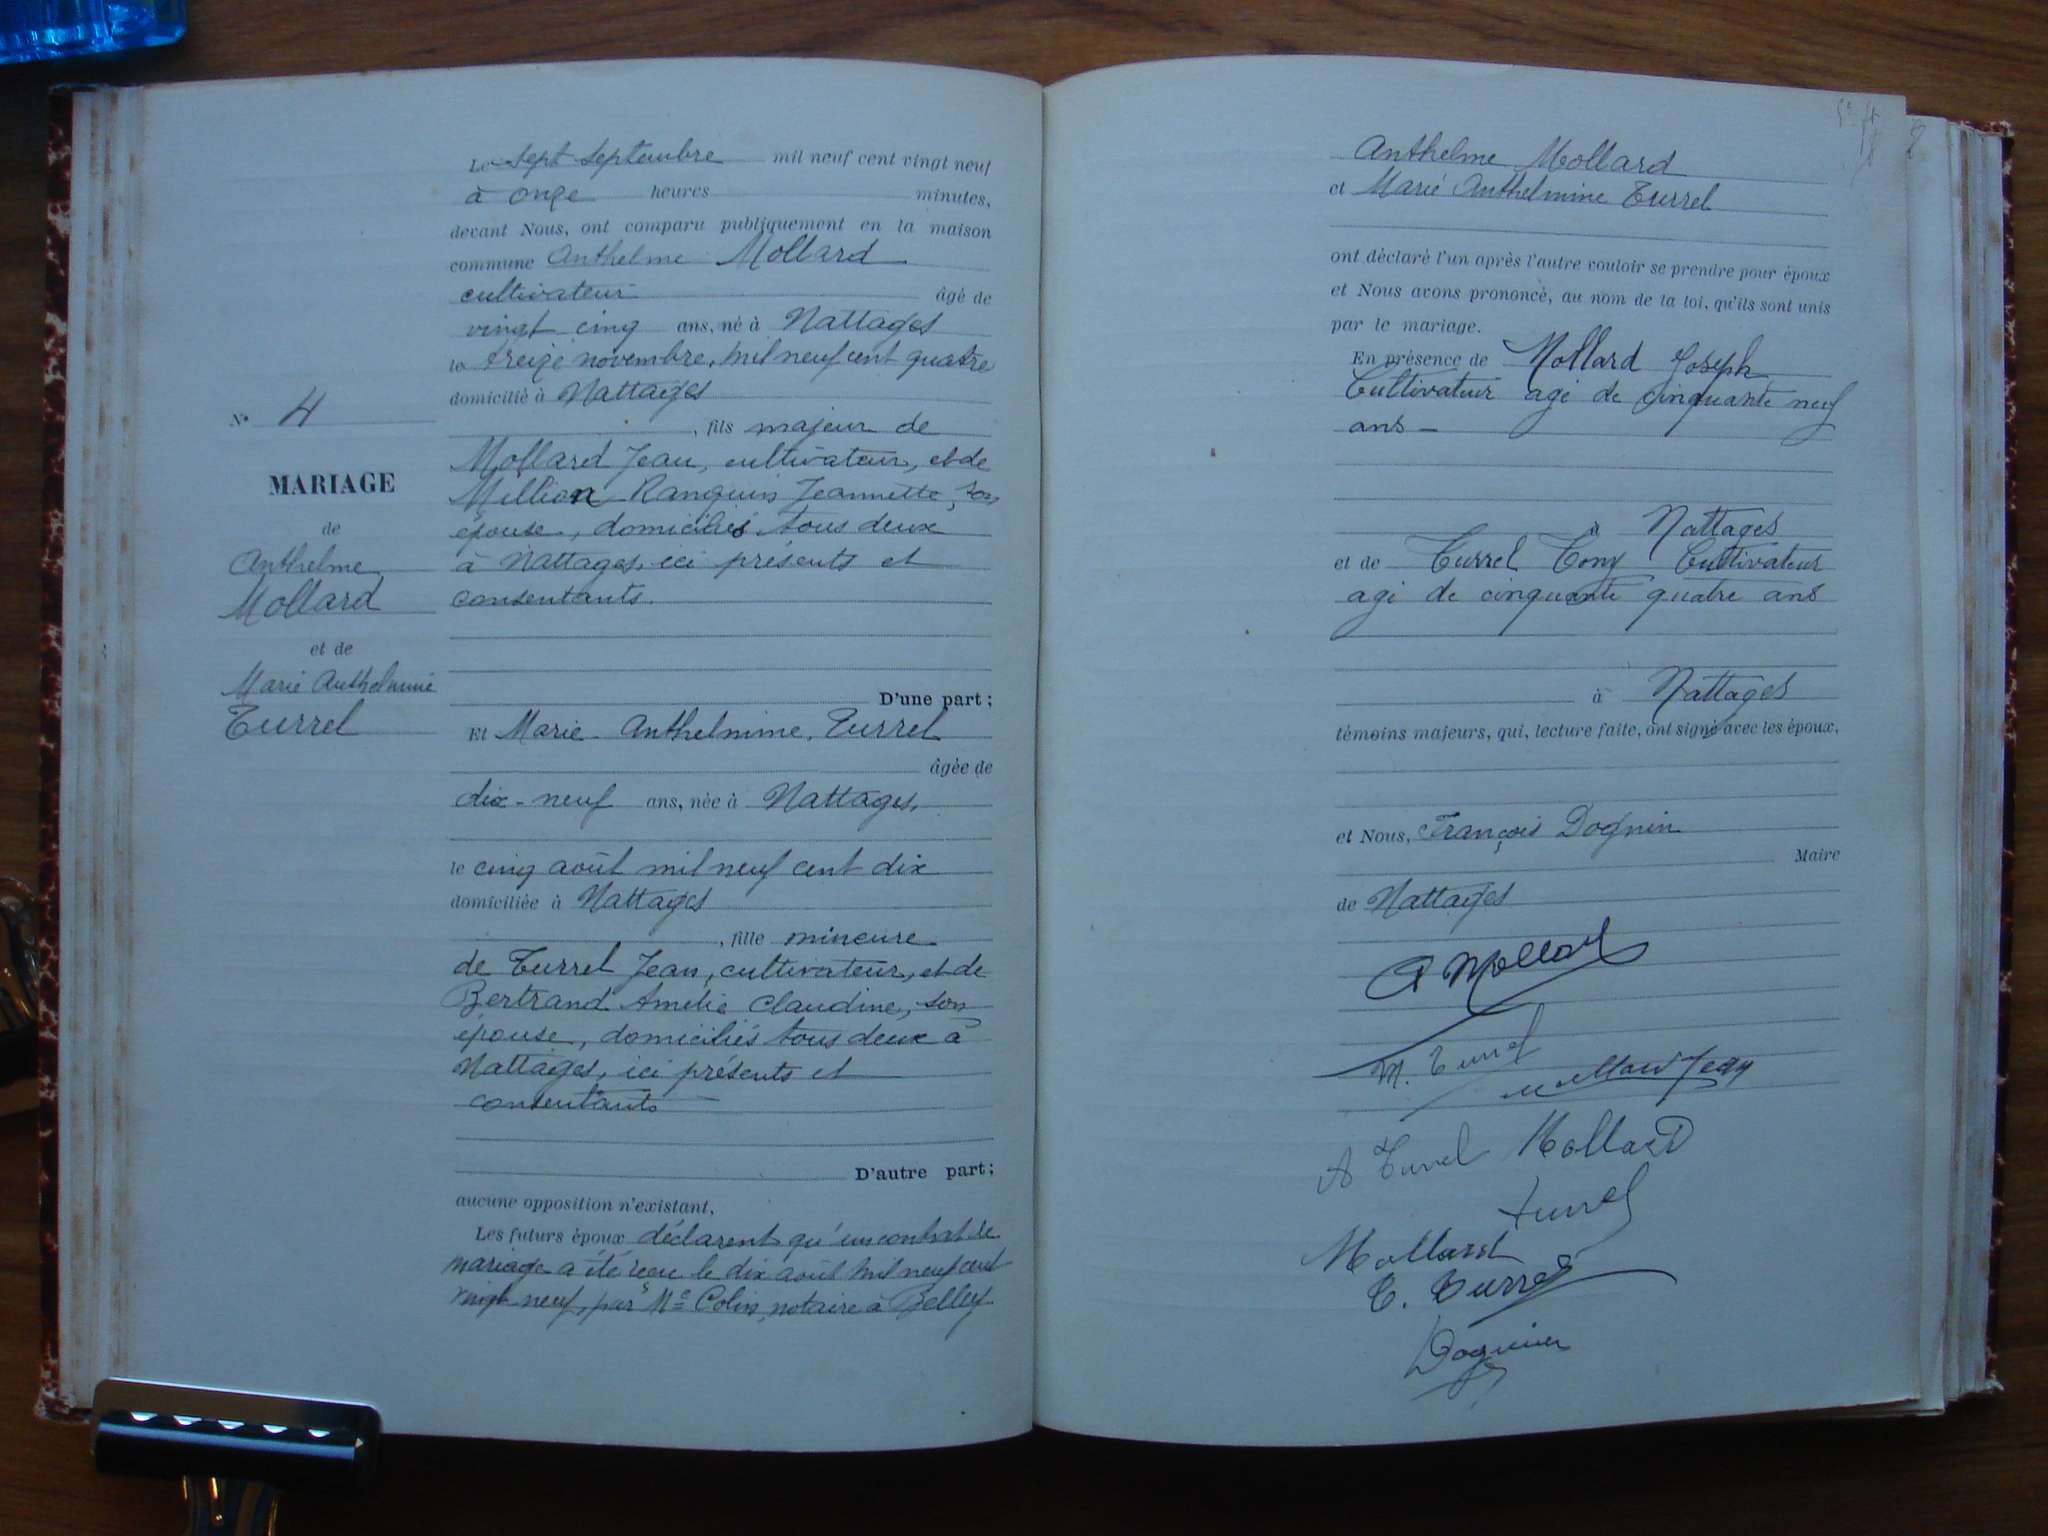 Le sept septembre mil neuf cent vingt neuf
à onze heures minutes,
devant Nous, ont comparu publiquement en la maison
commune Anthelme Mollard
cultivateur âgé de
vingt cinq ans, né à Nattages
le treize novembre, mil neuf cent quatre
domicilié à Nattages
, fils majeur de
Mollard Jean, cultivateur, et de
Million Ranquin Jeannette, son
épouse, domiciliés tous deux
à Nattages, ici présents et
consentants.
D'une part ;
Et Marie Anthelmine Turrel
âgée de
dix-neuf ans, née à Nattages,
le cinq août mil neuf cent dix
domiciliée à Nattages
, fille mineure
de Turrel Jean, cultivateur, et de
Bertrand Amélie Claudine, son
épouse, domiciliés tous deux à
Nattages, ici présents et
consentants
D'autre part ;
aucune opposition n'existant,
Les futurs époux déclarent qu'un contrat de
mariage a été reçu le dix août mil neuf cent
vingt neuf, par Me Colin, notaire à Belley
N° 4
MARIAGE
de
Anthelme
Mollard
et de
Marie Anthelmine
Turrel
Anthelme Mollard
et Marie Anthelmine Turrel
ont déclaré l'un après l'autre vouloir se prendre pour époux
et Nous avons prononcé, au nom de la loi, qu'ils sont unis
par le mariage.
En présence de Mollard Joseph
Cultivateur agé de cinquante neuf
ans -
à Nattages
et de Turrel Tony Cultivateur
agé de cinquante quatre ans
à Nattages
témoins majeurs, qui, lecture faite, ont signé avec les époux,
et Nous, François Dognin
Maire
de Nattages
A Mollard
M. Turrel
Mollard Jean
A Turrel Mollard
Turrel
Mollard
T. Turrel
Dognin